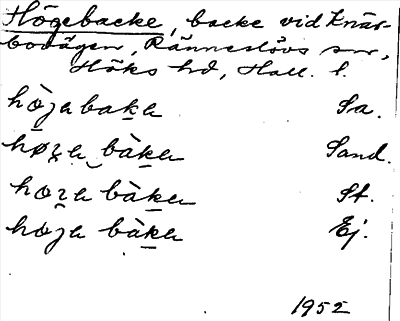 Högebacke, backe vid Knär-
bovägen, Ränneslövs sn,
Höks hd, Hall. l.
hòʒabaka Sa.
høʒa bàka Sand.
hoʒa bàka St.
hoʒa bàka Ej.
1952